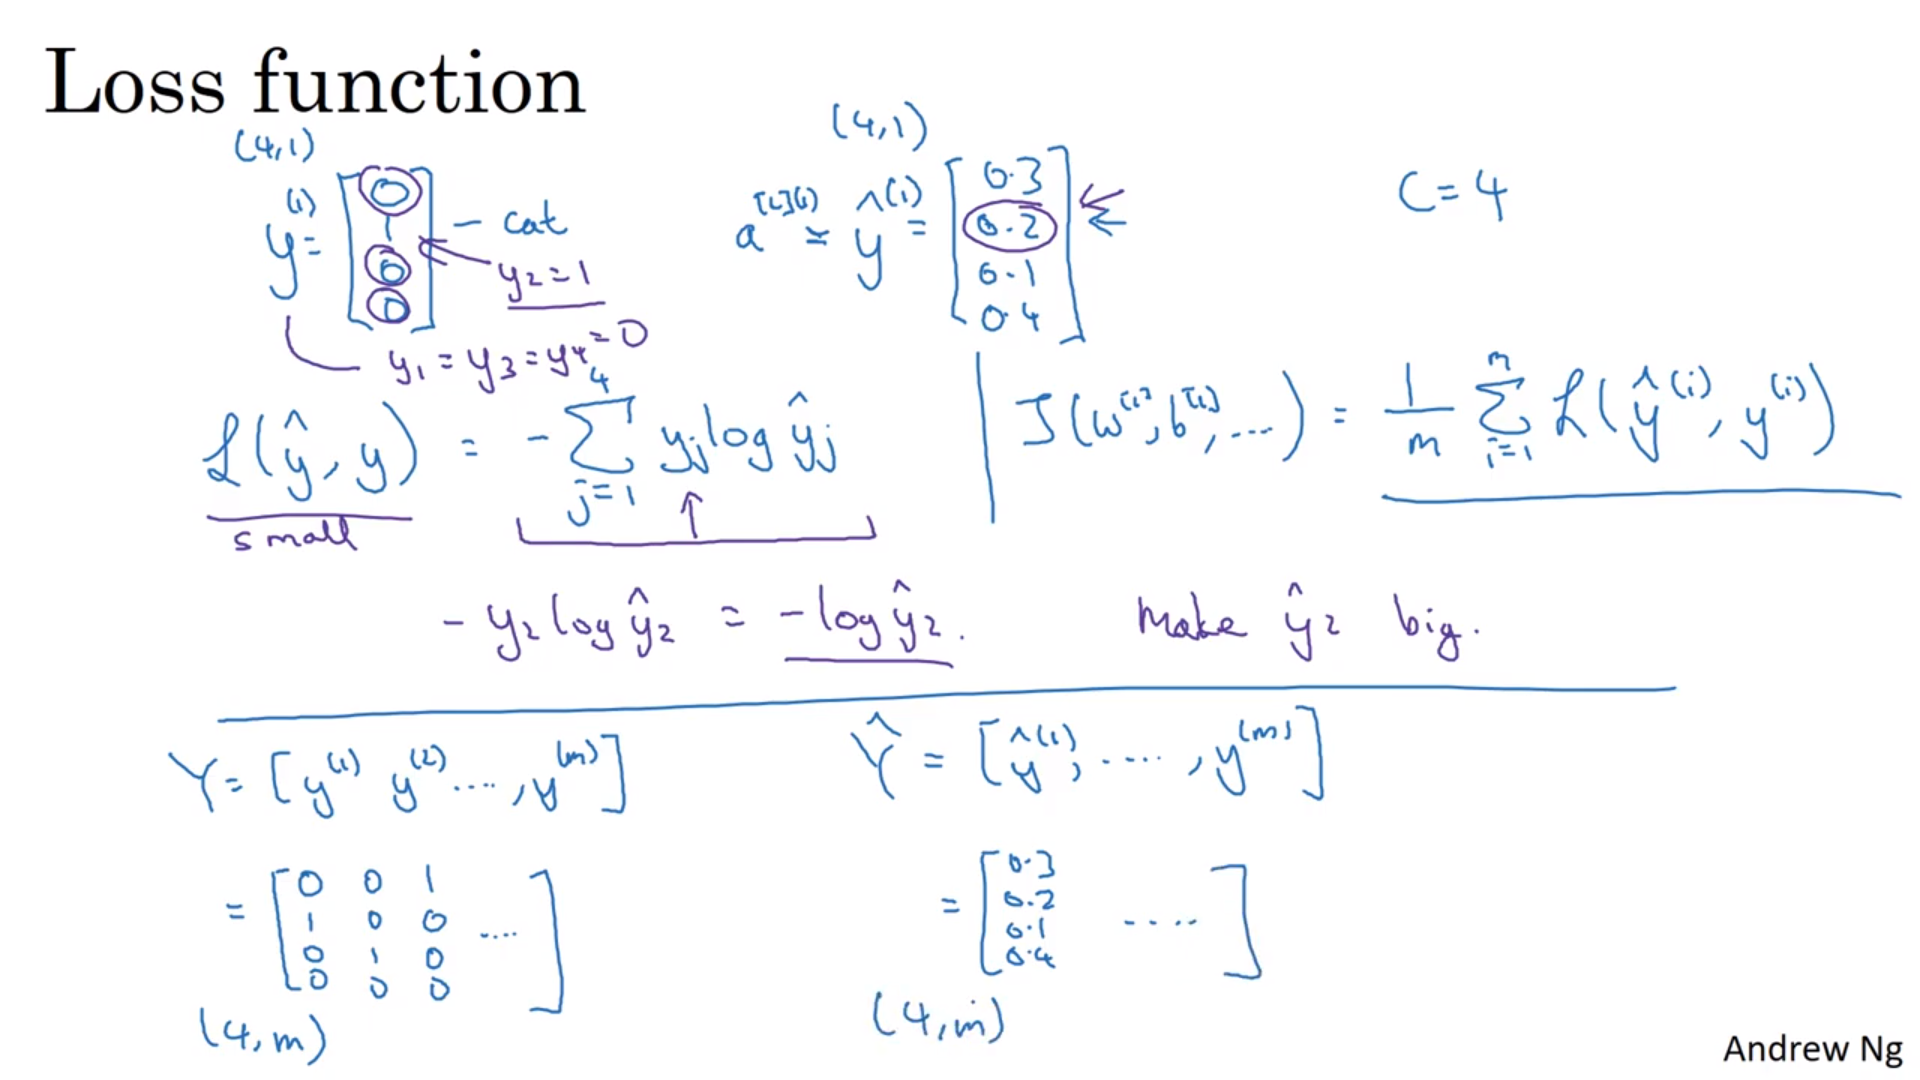 Loss function
(4,1)
y⁽¹⁾ = [0 1 0 0] - cat
y₂ = 1
y₁ = y₃ = y₄ = 0
(4,1)
a^[L](1) = ŷ⁽¹⁾ = [0.3 0.2 0.1 0.4]
C = 4
ℒ(ŷ, y) = - ∑_{j=1}^{4} yⱼ log ŷⱼ
small
J(w^[1], b^[1], ....) = 1/m ∑_{i=1}^{m} ℒ(ŷ⁽ⁱ⁾, y⁽ⁱ⁾)
- y₂ log ŷ₂ = - log ŷ₂. Make ŷ₂ big.
Y = [y⁽¹⁾ y⁽²⁾ ...., y⁽ᵐ⁾]
= [0 0 1
1 0 0 ....
0 1 0
0 0 0]
(4,m)
Ŷ = [ŷ⁽¹⁾, ...., y⁽ᵐ⁾]
= [0.3
0.2
0.1 ....
0.4]
(4,m)
Andrew Ng